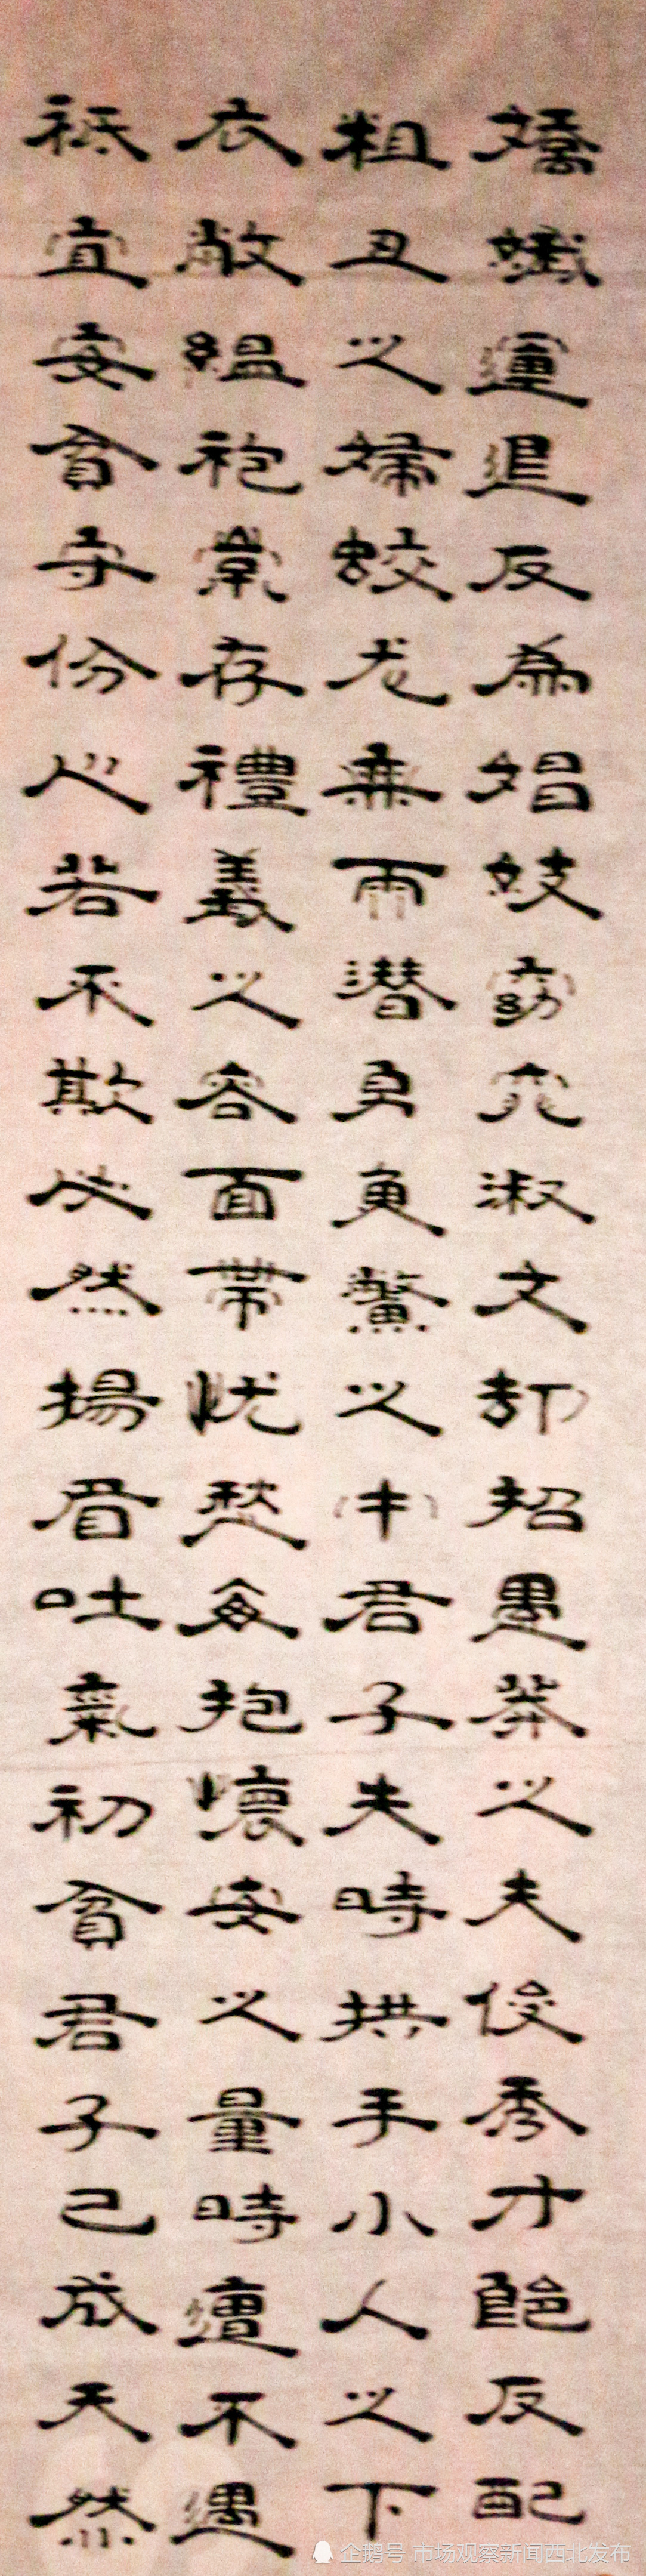 嬌孅運退反為娼妓窈窕淑文却招愚莽之夫俊秀才郎反配
粗丑之婦蛟龙無雨潜身魚鱉之中君子失時拱手小人之下
衣敝緼袍常存禮義之容面带忧愁每抱懷安之量時遭不遇
祇宜安貧守份心若不欺必然揚眉吐氣初貧君子已成天然
企鹅号 市场观察新闻西北发布